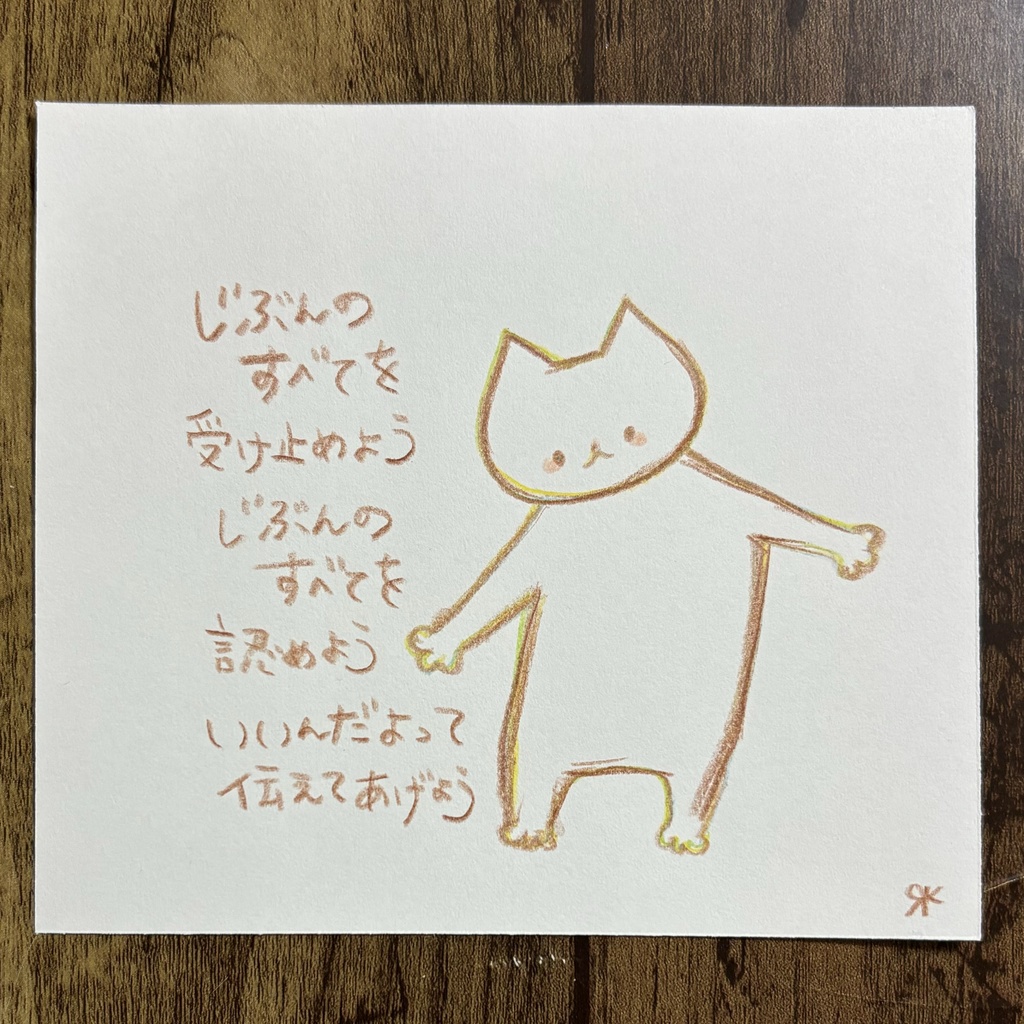 じぶんの
すべてを
受け止めよう
じぶんの
すべてを
認めよう
いいんだよって
伝えてあげよう